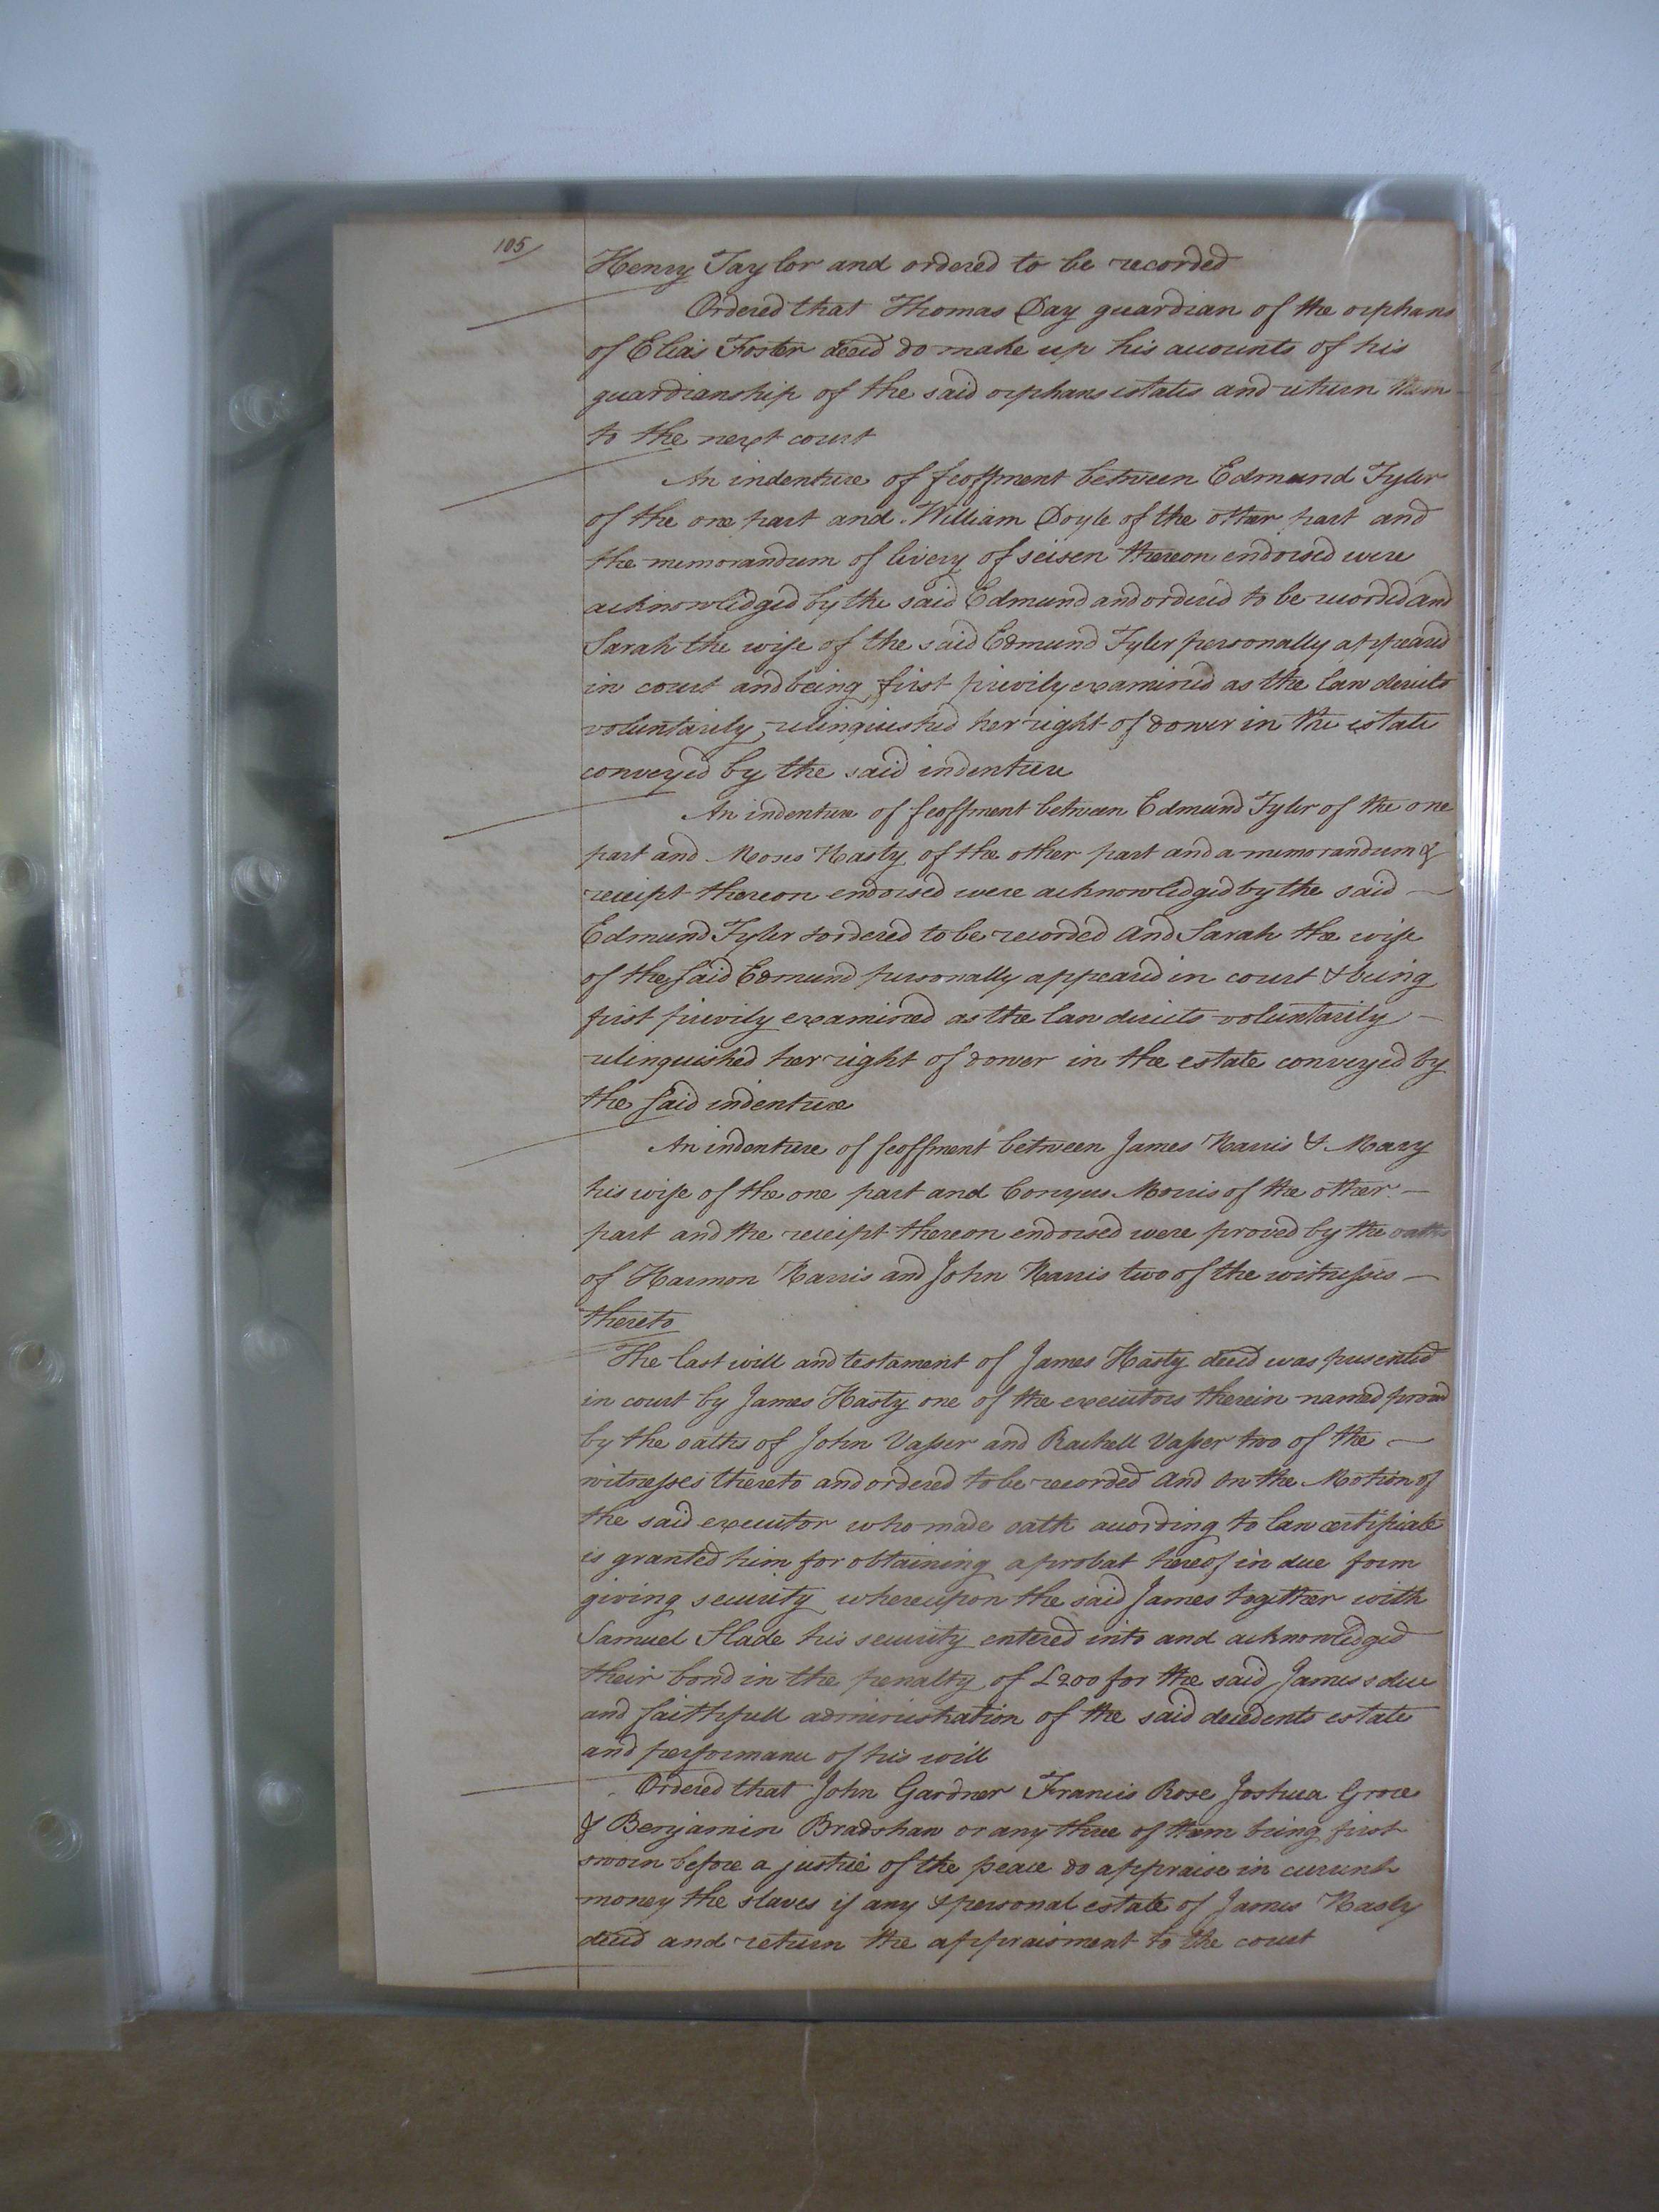 105/
Henry Taylor and ordered to be recorded
Ordered that Thomas Day guardian of the orphans
of Elias Foster decd do make up his accounts of his
guardianship of the said orphans estates and return them
to the next court
An indenture of feoffment between Edmund Tyler
of the one part and William Doyle of the other part and
the memorandum of livery of seisen thereon endorsed were
acknowledged by the said Edmund and ordered to be recorded and
Sarah the wife of the said Edmund Tyler personally appeared
in court and being first privily examined as the law directs
voluntarily relinquished her right of dower in the estate
conveyed by the said indenture
An indenture of feoffment between Edmund Tyler of the one
part and Moses Hasty of the other part and a memorandum &
receipt thereon endorsed were acknowledged by the said —
Edmund Tyler & ordered to be recorded And Sarah the wife
of the said Edmund personally appeared in court & being
first privily examined as the law directs voluntarily —
relinquished her right of dower in the estate conveyed by
the said indenture
An indenture of feoffment between James Harris & Mary
his wife of the one part and Conyus Morris of the other —
part and the receipt thereon endorsed were proved by the oaths
of Harmon Harris and John Harris two of the witnesses —
thereto
The last will and testament of James Hasty decd was presented
in court by James Hasty one of the executors therein named proved
by the oaths of John Vasser and Rachell Vasser two of the —
witnesses thereto and ordered to be recorded And On the Motion of
the said executor who made oath according to law certificate
is granted him for obtaining a probat thereof in due form
giving security whereupon the said James together with
Samuel Slade his security entered into and acknowledged
their bond in the penalty of £200 for the said James s due
and faithfull administration of the said decedents estate
and performance of his will
Ordered that John Gardner Francis Rose Joshua Grove
& Benjamin Bradshaw or any three of them being first
sworn before a justice of the peace do appraise in current
money the slaves if any & personal estate of James Hasty
decd and return the appraisment to the court